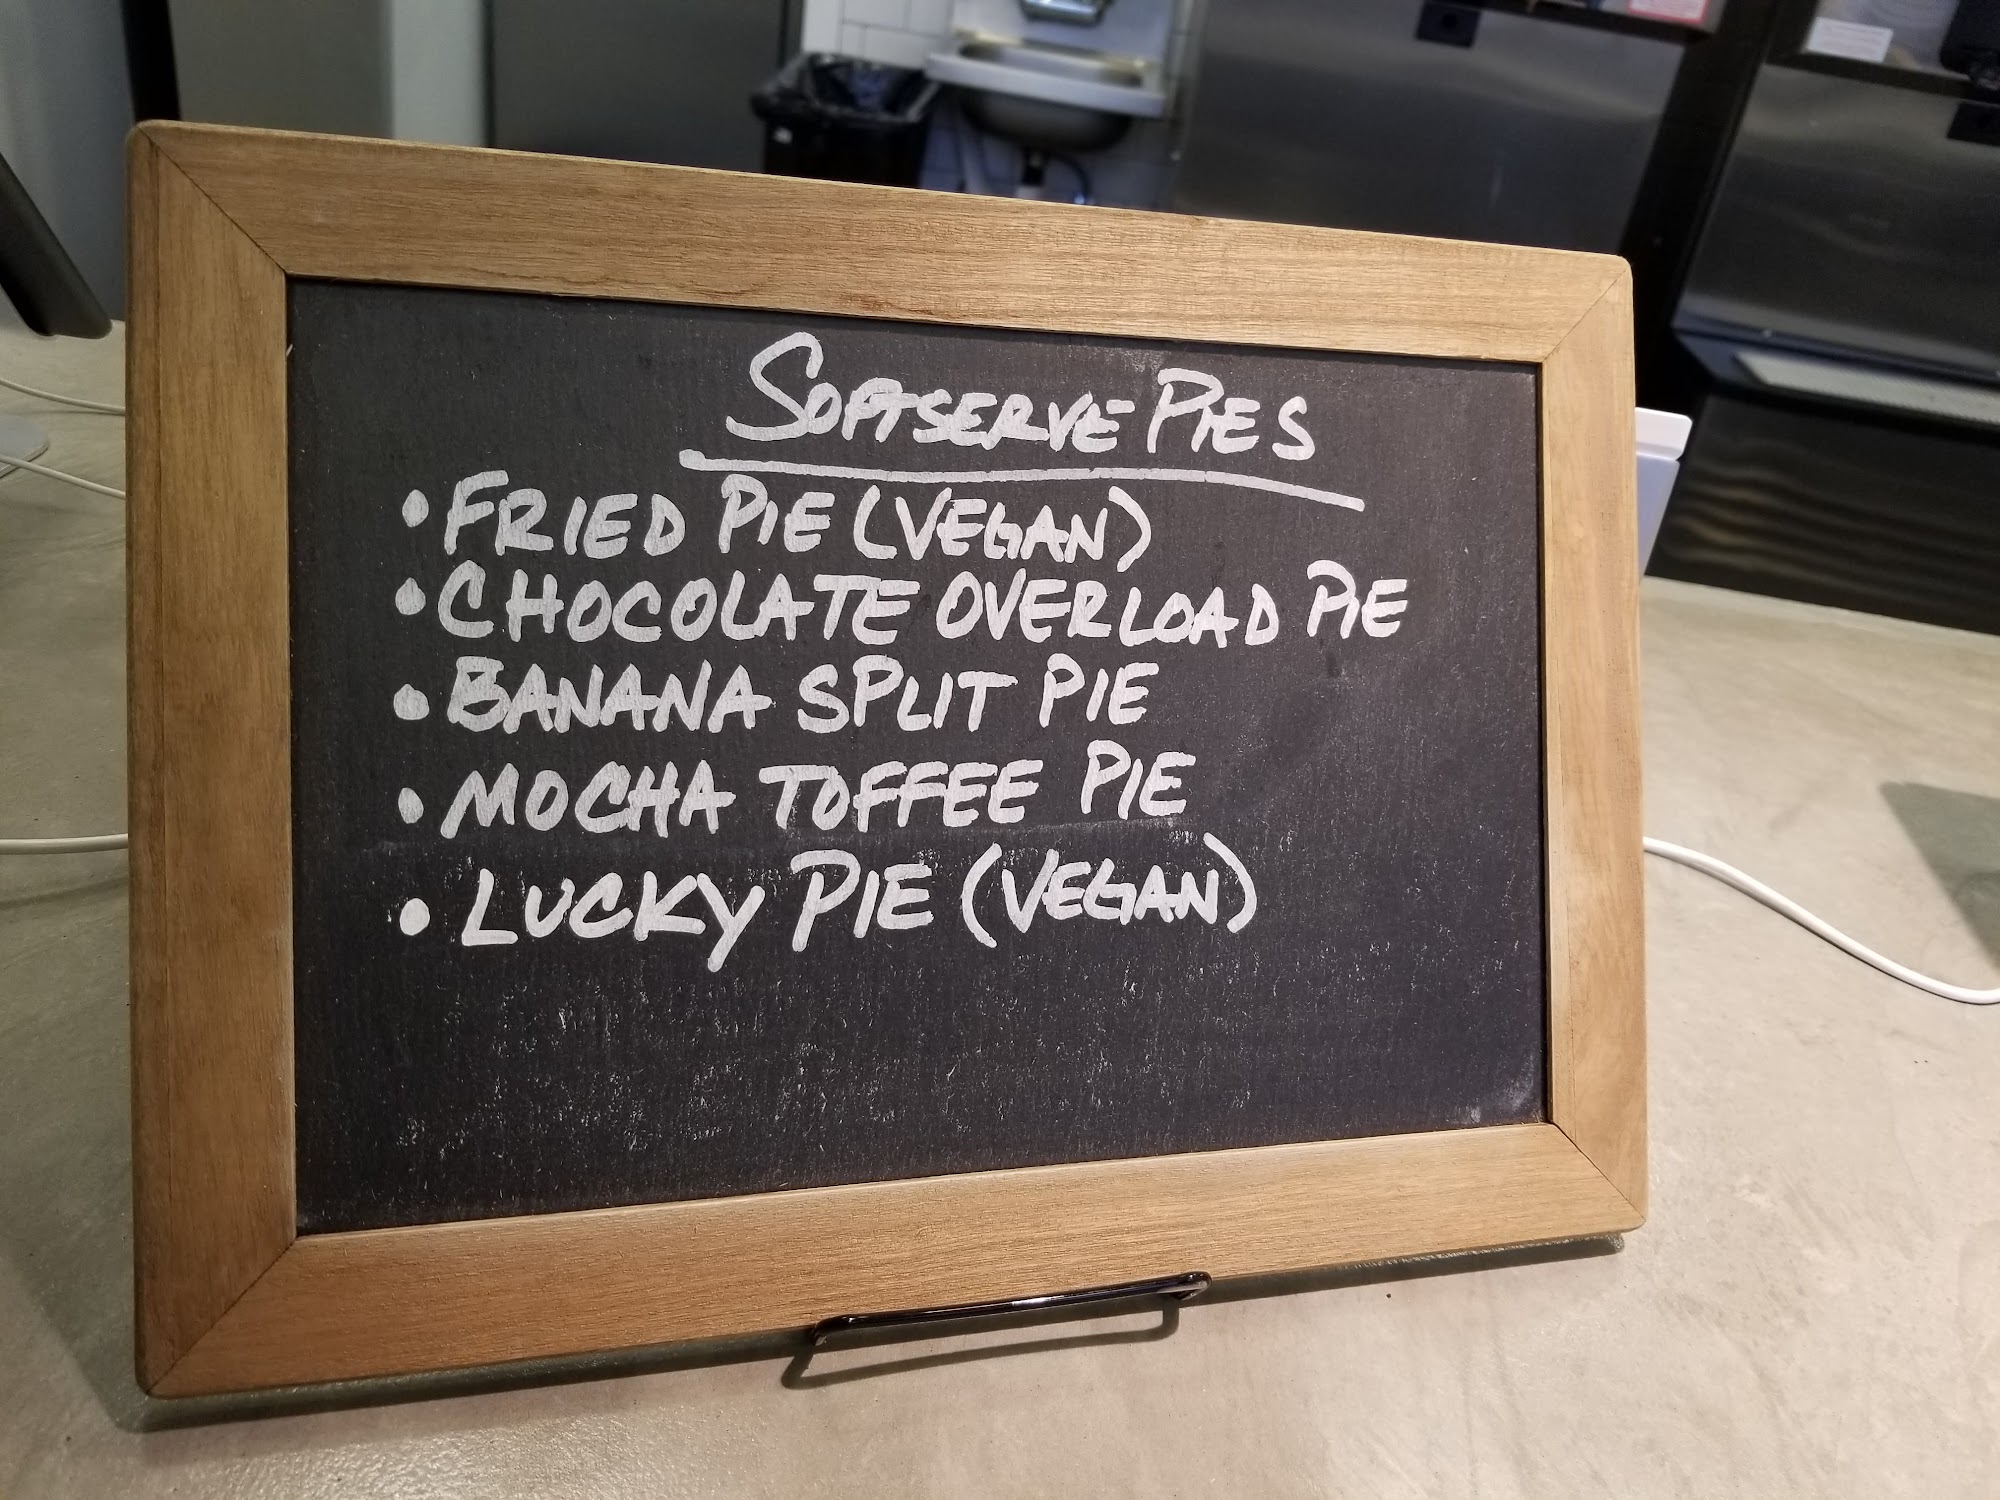 SOFTSERVE PIES
• FRIED PIE (VEGAN)
• CHOCOLATE OVERLOAD PIE
• BANANA SPLIT PIE
• MOCHA TOFFEE PIE
• LUCKY PIE (VEGAN)